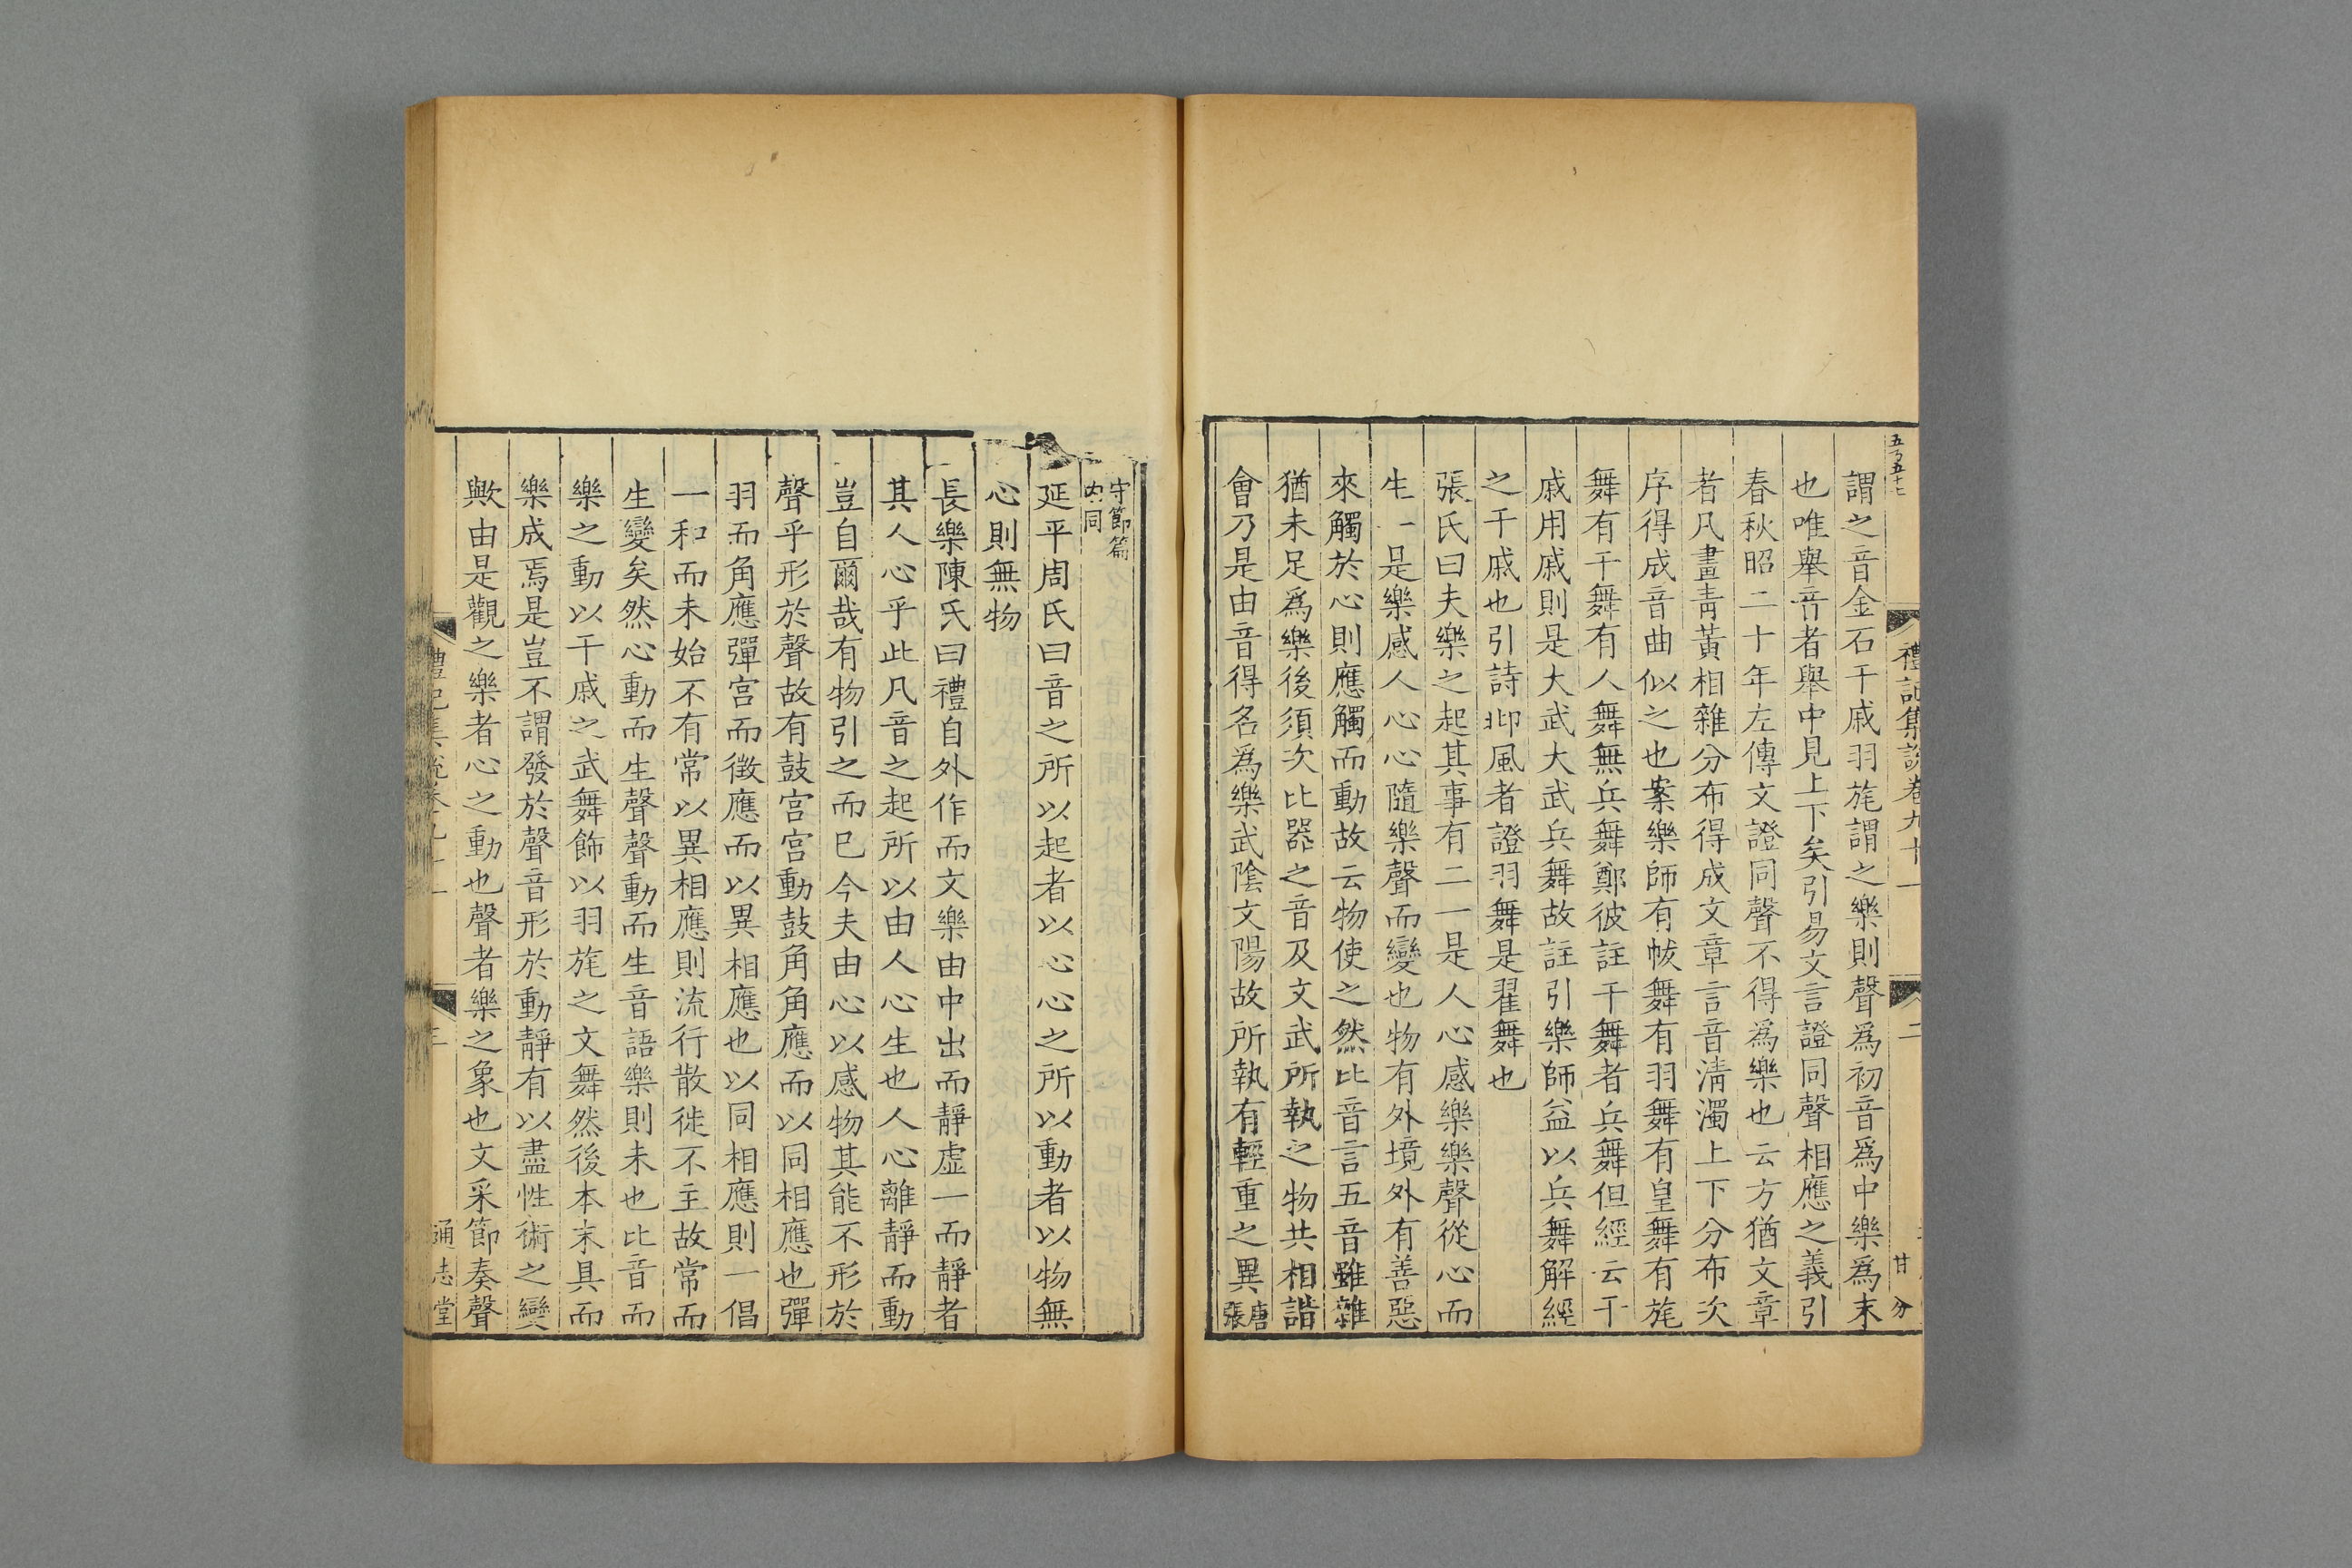 禮記集說卷九十一
二
甘
分
謂之音金石干戚羽旄謂之樂則聲爲初音爲中樂爲末
也唯舉音者舉中見上下矣引易文言證同聲相應之義引
春秋昭二十年左傳文證同聲不得爲樂也云方猶文章
者凡畫靑黃相雜分布得成文章言音淸濁上下分布次
序得成音曲似之也案樂師有帗舞有羽舞有皇舞有旄
舞有干舞有人舞無兵舞鄭彼註干舞者兵舞但經云干
戚用戚則是大武大武兵舞故註引樂師益以兵舞解經
之干戚也引詩邶風者證羽舞是翟舞也
張氏曰夫樂之起其事有二一是人心感樂樂聲從心而
生一是樂感人心心隨樂聲而變也物有外境外有善惡
來觸於心則應觸而動故云物使之然比音言五音雖雜
猶未足爲樂後須次比器之音及文武所執之物共相諧
會乃是由音得名爲樂武陰文陽故所執有輕重之異唐張
守節篇
內同
延平周氏曰音之所以起者以心心之所以動者以物無
心則無物
長樂陳氏曰禮自外作而文樂由中出而靜虛一而靜者
其人心乎此凡音之起所以由人心生也人心離靜而動
豈自爾哉有物引之而已今夫由心以感物其能不形於
聲乎形於聲故有鼓宫宫動鼓角角應而以同相應也彈
羽而角應彈宫而徵應而以異相應也以同相應則一倡
一和而未始不有常以異相應則流行散徙不主故常而
生變矣然心動而生聲聲動而生音語樂則未也比音而
樂之動以干戚之武舞飾以羽旄之文舞然後本末具而
樂成焉是豈不謂發於聲音形於動靜有以盡性術之變
歟由是觀之樂者心之動也聲者樂之象也文采節奏聲
禮記集說卷九十一
三
通志堂